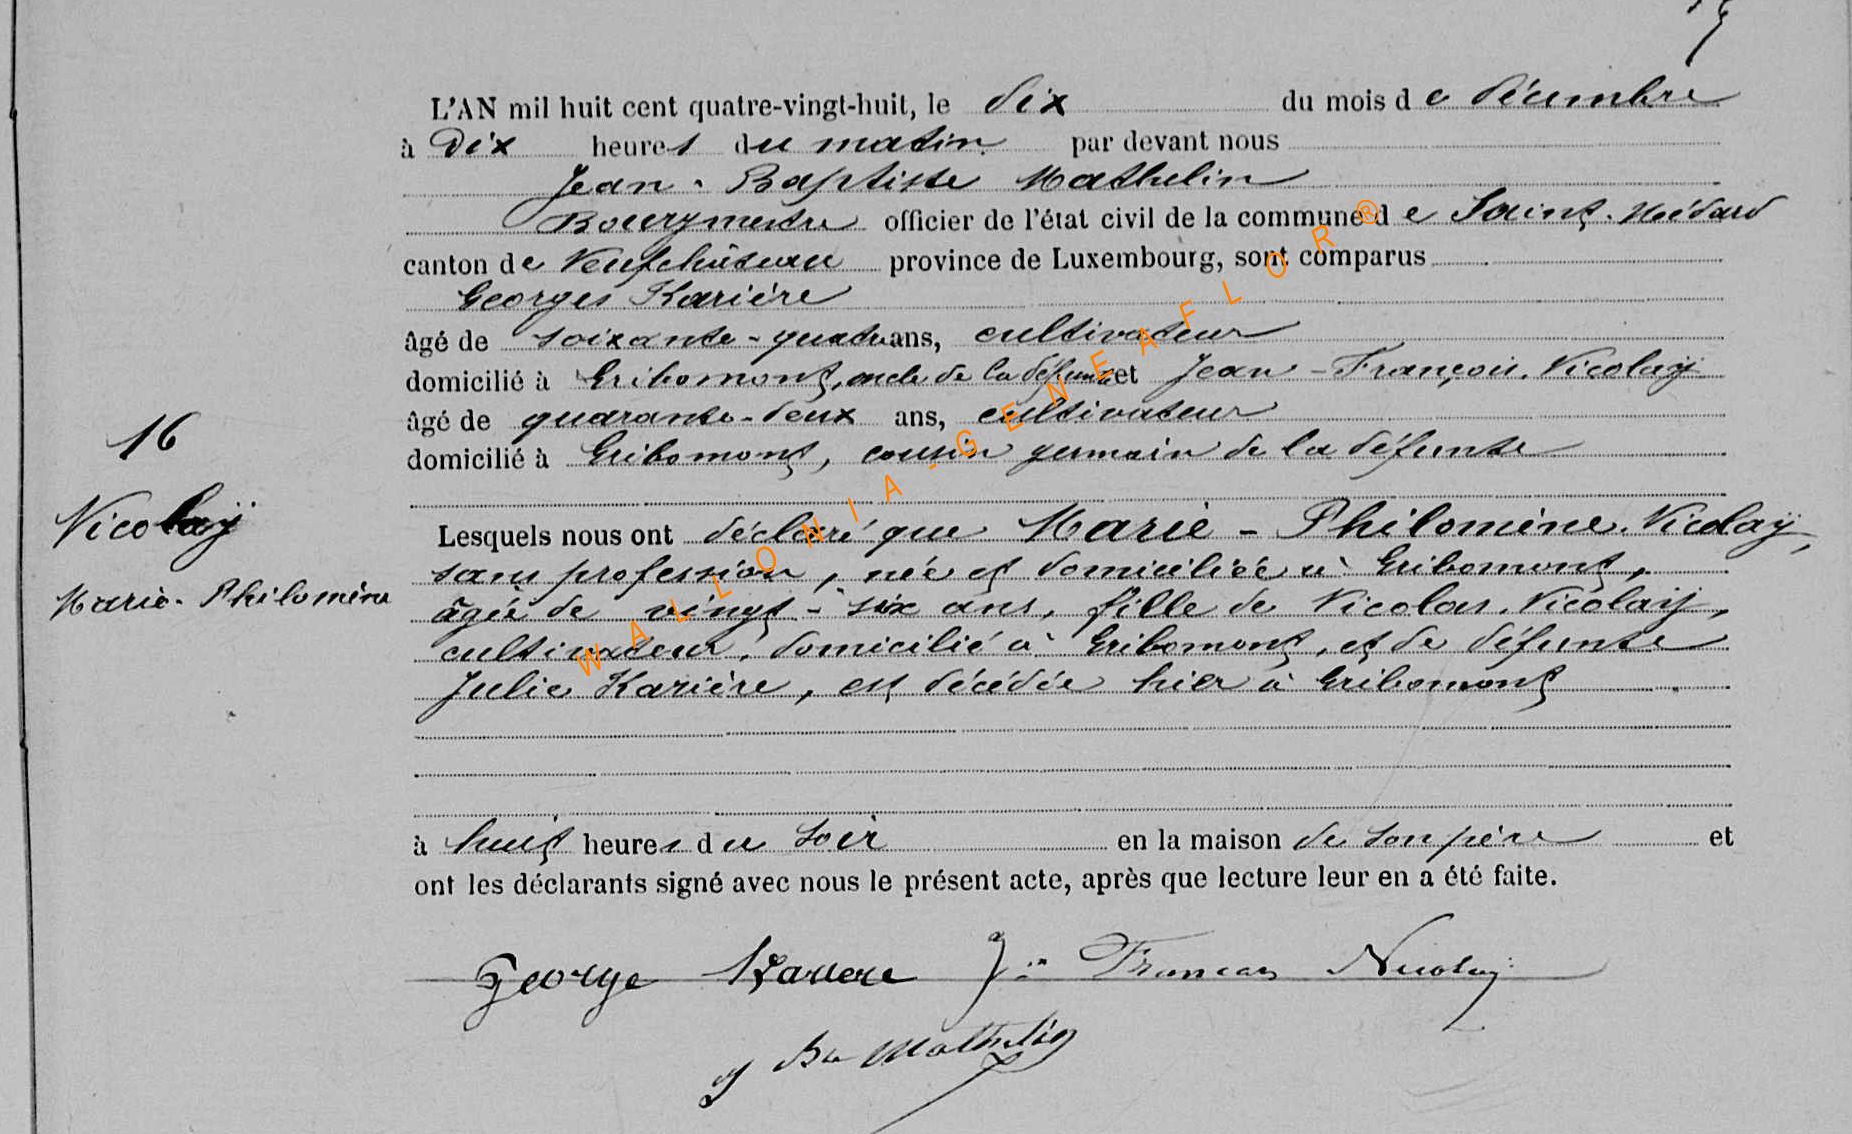 L'AN mil huit cent quatre-vingt-huit, le dix du mois de décembre
à Dix heures du matin par devant nous
Jean-Baptiste Mathelin
Bourgmestre officier de l'état civil de la commune de Saint-Médard
canton de Neufchâteau province de Luxembourg, sont comparus
Georges Karière
âgé de soixante-quatre ans, cultivateur
domicilié à Gribomont, oncle de la défunte et Jean-François Nicolaÿ
âgé de quarante-deux ans, cultivateur
domicilié à Gribomont, cousin germain de la défunte
16
Nicolaÿ
Marie-Philomène
Lesquels nous ont déclaré que Marie-Philomène Nicolaÿ,
sans profession, née et domiciliée à Gribomont,
âgée de vingt-six ans, fille de Nicolas Nicolaÿ,
cultivateur, domicilié à Gribomont, et de défunte
Julie Karière, est décédée hier à Gribomont
à huit heures du soir en la maison de son père et
ont les déclarants signé avec nous le présent acte, après que lecture leur en a été faite.
George Kariere J:n François Nicolaÿ
J Bte Mathelin
WALLONIA-GENEAFLOR®